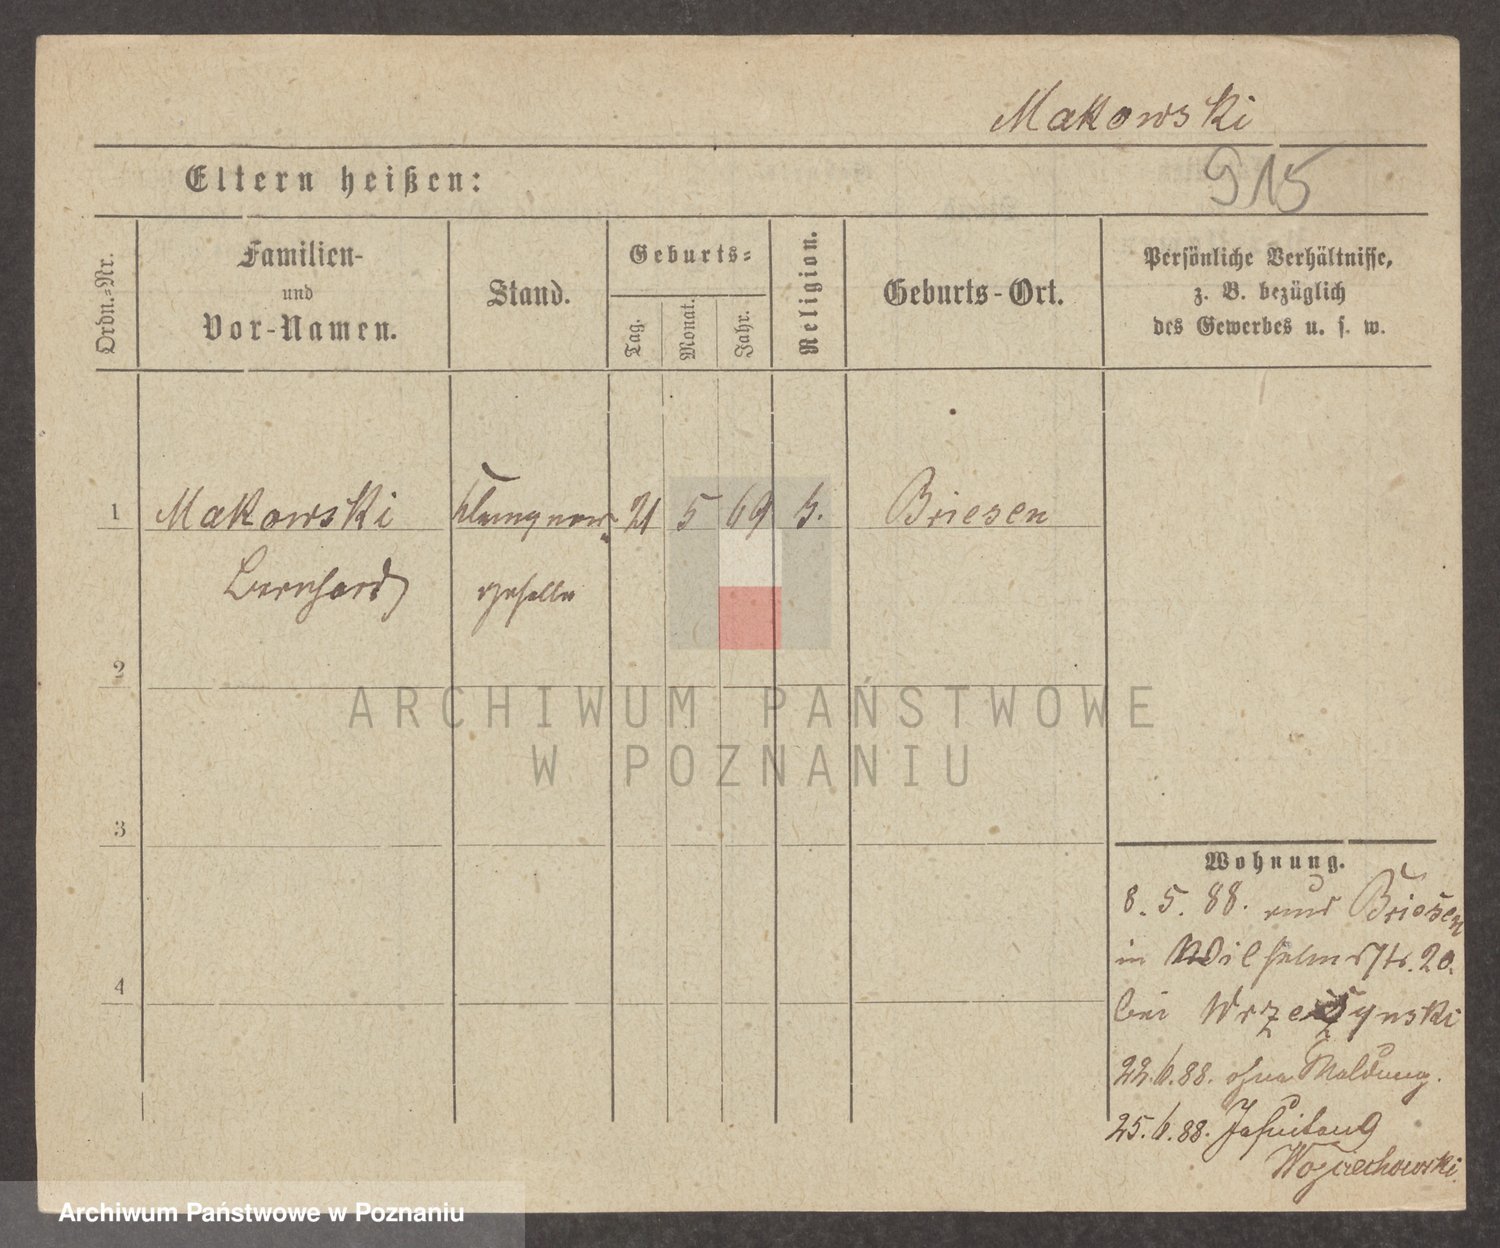 Makowski
915
Eltern heißen:
Ordn.-Nr.
Familien-
und
Vor-Namen.
Stand.
Geburts-
Tag.
Monat.
Jahr.
Religion.
Geburts-Ort.
Persönliche Verhältnisse,
z. B. bezüglich
des Gewerbes u. s. w.
1 Makowski Klempner- 21 5 69 Briesen
Bernhard geselle
2
ARCHIWUM PAŃSTWOWE
W POZNANIU
3
Wohnung.
8. 5. 88. aus Briesen
in Wilhelmstr. 20.
bei
4
22.6.88. ohne Meldung.
25.6.88.
Wojciechowski
Archiwum Państwowe w Poznaniu